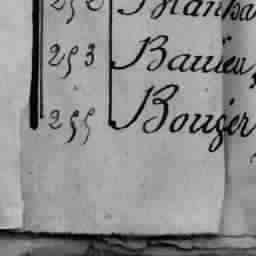 252 Blanba
253 Bauieu,
255 Bouger